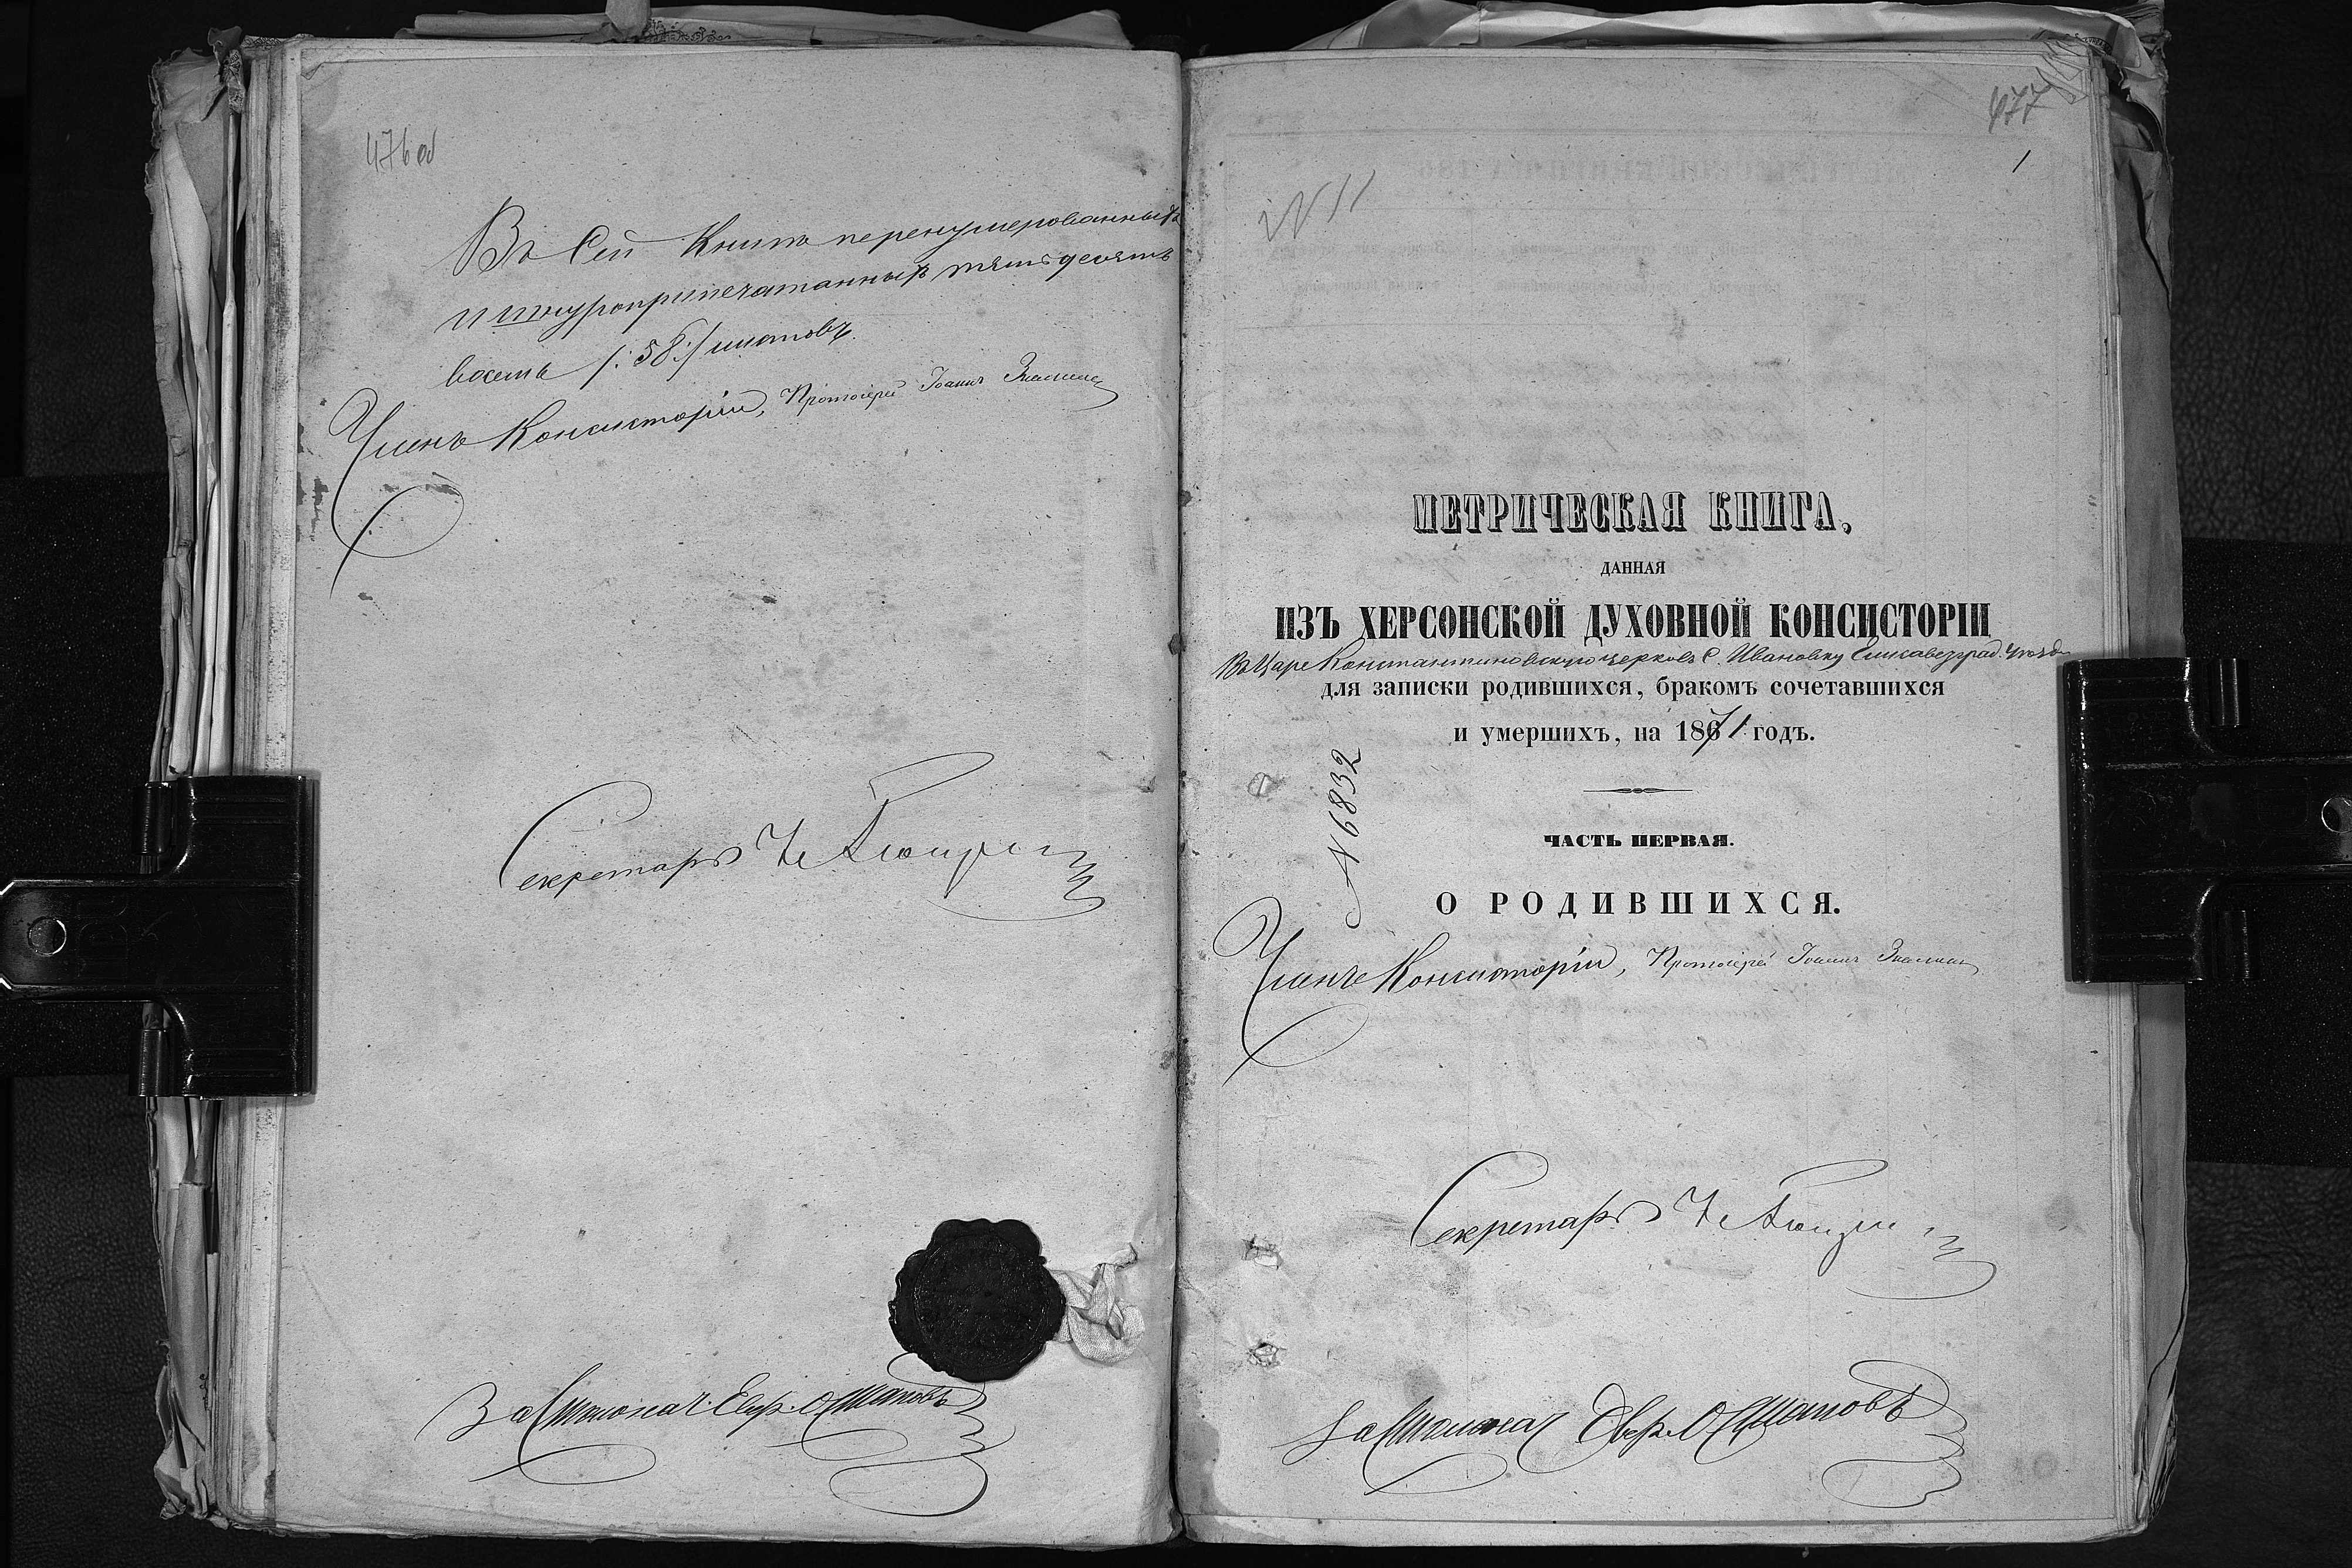 476 об
Въ сей книгѣ перенумерованныхъ
и шнуроприпечатанныхъ пятьдесятъ
восемь /:58:/ листовъ.
Членъ Консисторіи, Протоіерей Іоаннъ
Секретарь
За Столонач.
477
1
N 11
МЕТРИЧЕСКАЯ КНИГА,
ДАННАЯ
ИЗЪ ХЕРСОНСКОЙ ДУХОВНОЙ КОНСИСТОРІИ
въ Царе Константиновскую церковь с. Ивановку Елисаветград. уѣзда
для записки родившихся, бракомъ сочетавшихся
и умершихъ, на 1871 годъ.
N 6832
ЧАСТЬ ПЕРВАЯ.
О РОДИВШИХСЯ.
Членъ Консисторіи, Протоіерей Іоаннъ
Секретарь
За Столонач